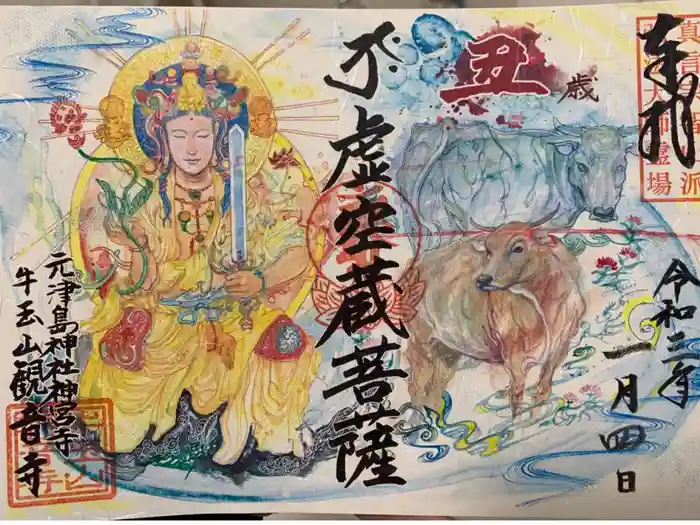 奉拝
真言
大師霊場
令和三年
一月四日
丑歳
虚空蔵菩薩
元津島神社神宮寺
牛玉山観音寺